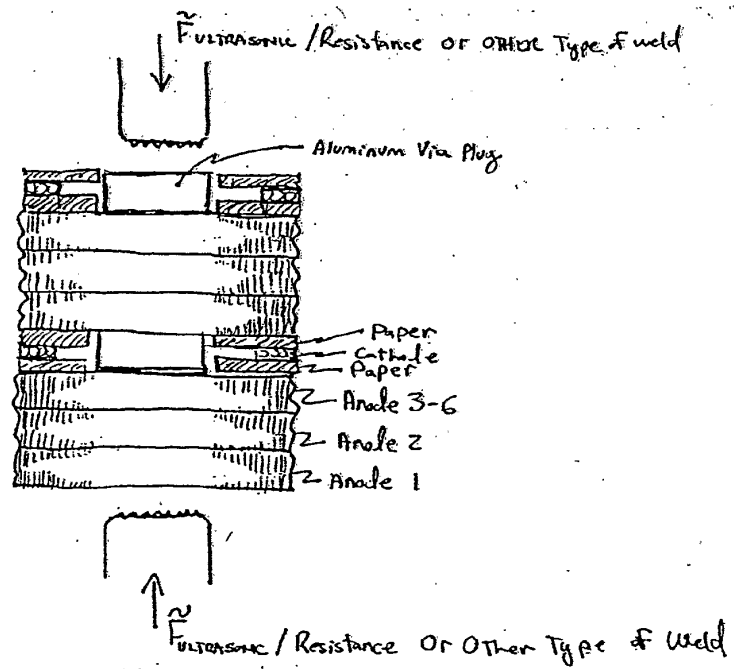 F̃ULTRASONIC / Resistance or OTHER Type of weld
Aluminum Via Plug
Paper
Cathode
Paper
Anode 3-6
Anode 2
Anode 1
F̃ULTRASONIC / Resistance Or Other Type of Weld